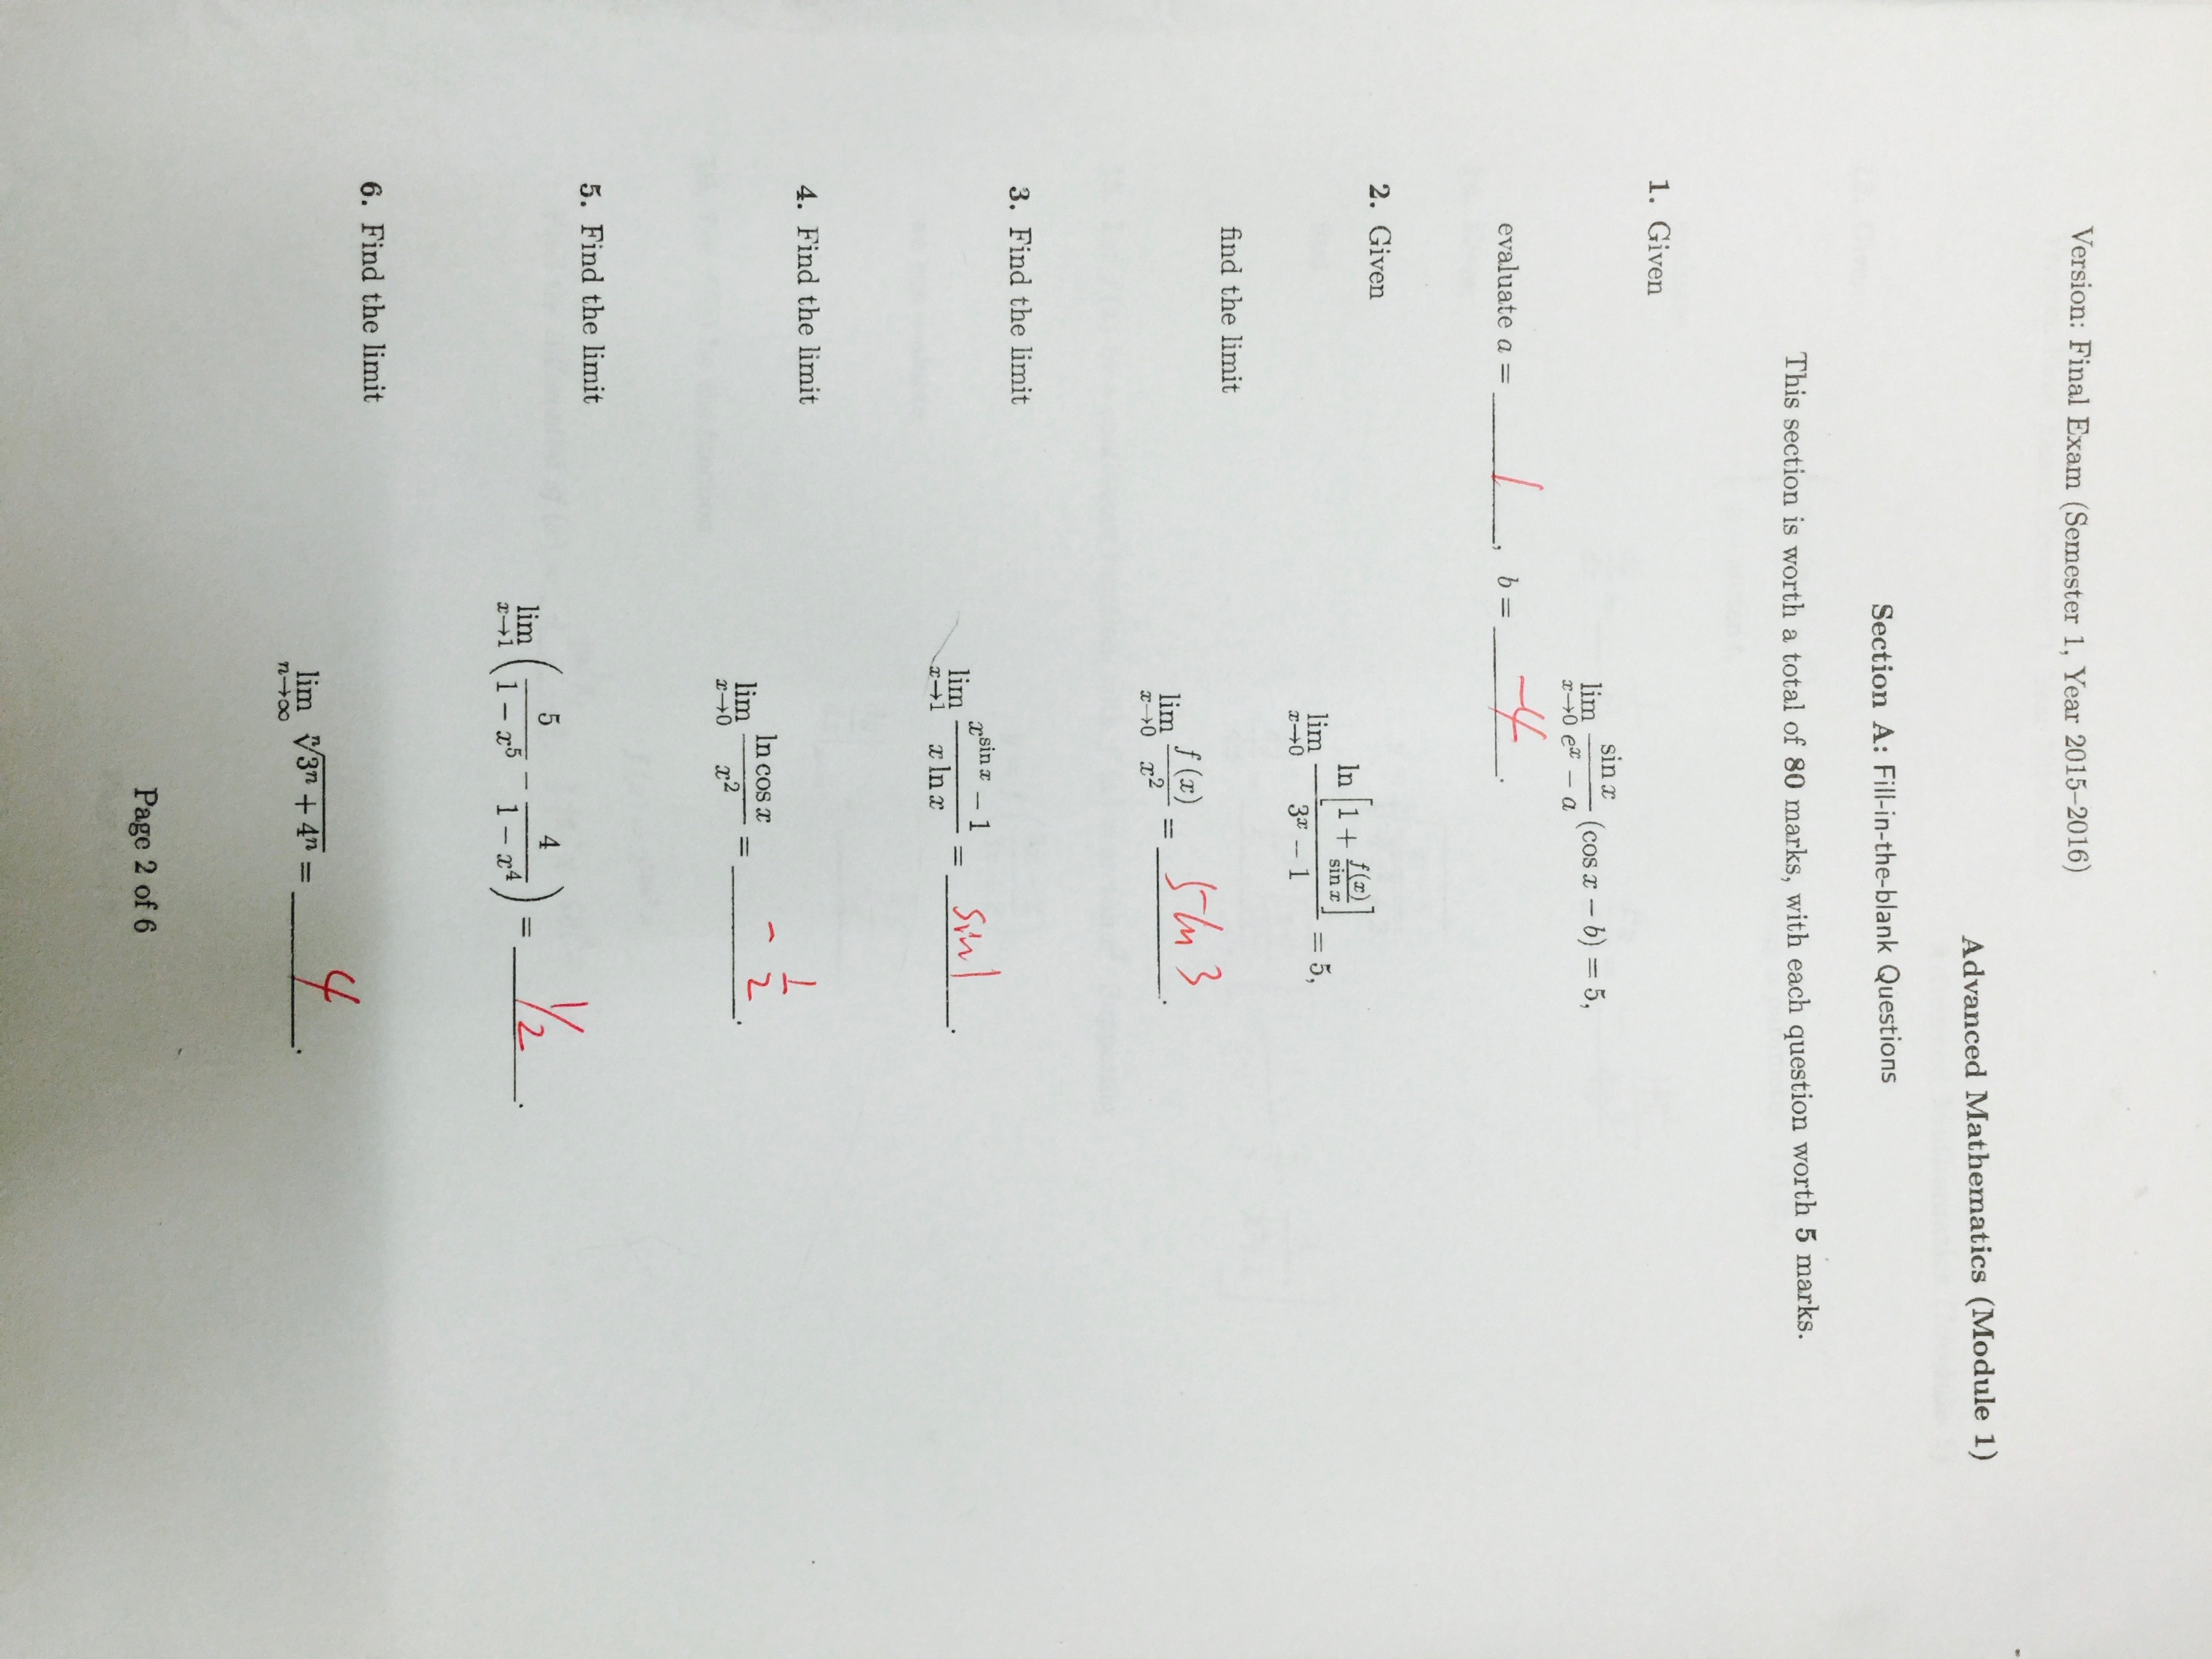 Version: Final Exam (Semester 1, Year 2015–2016)
Advanced Mathematics (Module 1)
Section A: Fill-in-the-blank Questions
This section is worth a total of 80 marks, with each question worth 5 marks.
1. Given
lim_{x→0} \frac{sin x}{e^x − a} (cos x − b) = 5,
evaluate a = 1, b = −4.
2. Given
lim_{x→0} \frac{ln [1 + \frac{f(x)}{sin x}]}{3^x − 1} = 5,
find the limit
lim_{x→0} \frac{f(x)}{x^2} = 5 ln 3.
3. Find the limit
lim_{x→1} \frac{x^{sin x} − 1}{x ln x} = sin 1.
4. Find the limit
lim_{x→0} \frac{ln cos x}{x^2} = − \frac{1}{2}.
5. Find the limit
lim_{x→1} ( \frac{5}{1 − x^5} − \frac{4}{1 − x^4} ) = 1/2.
6. Find the limit
lim_{n→∞} \sqrt[n]{3^n + 4^n} = 4.
Page 2 of 6